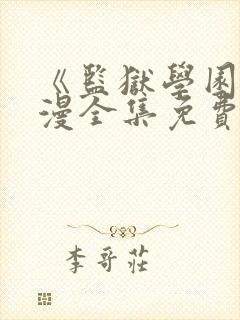 《監獄學園
漫全集免費
李哥莊